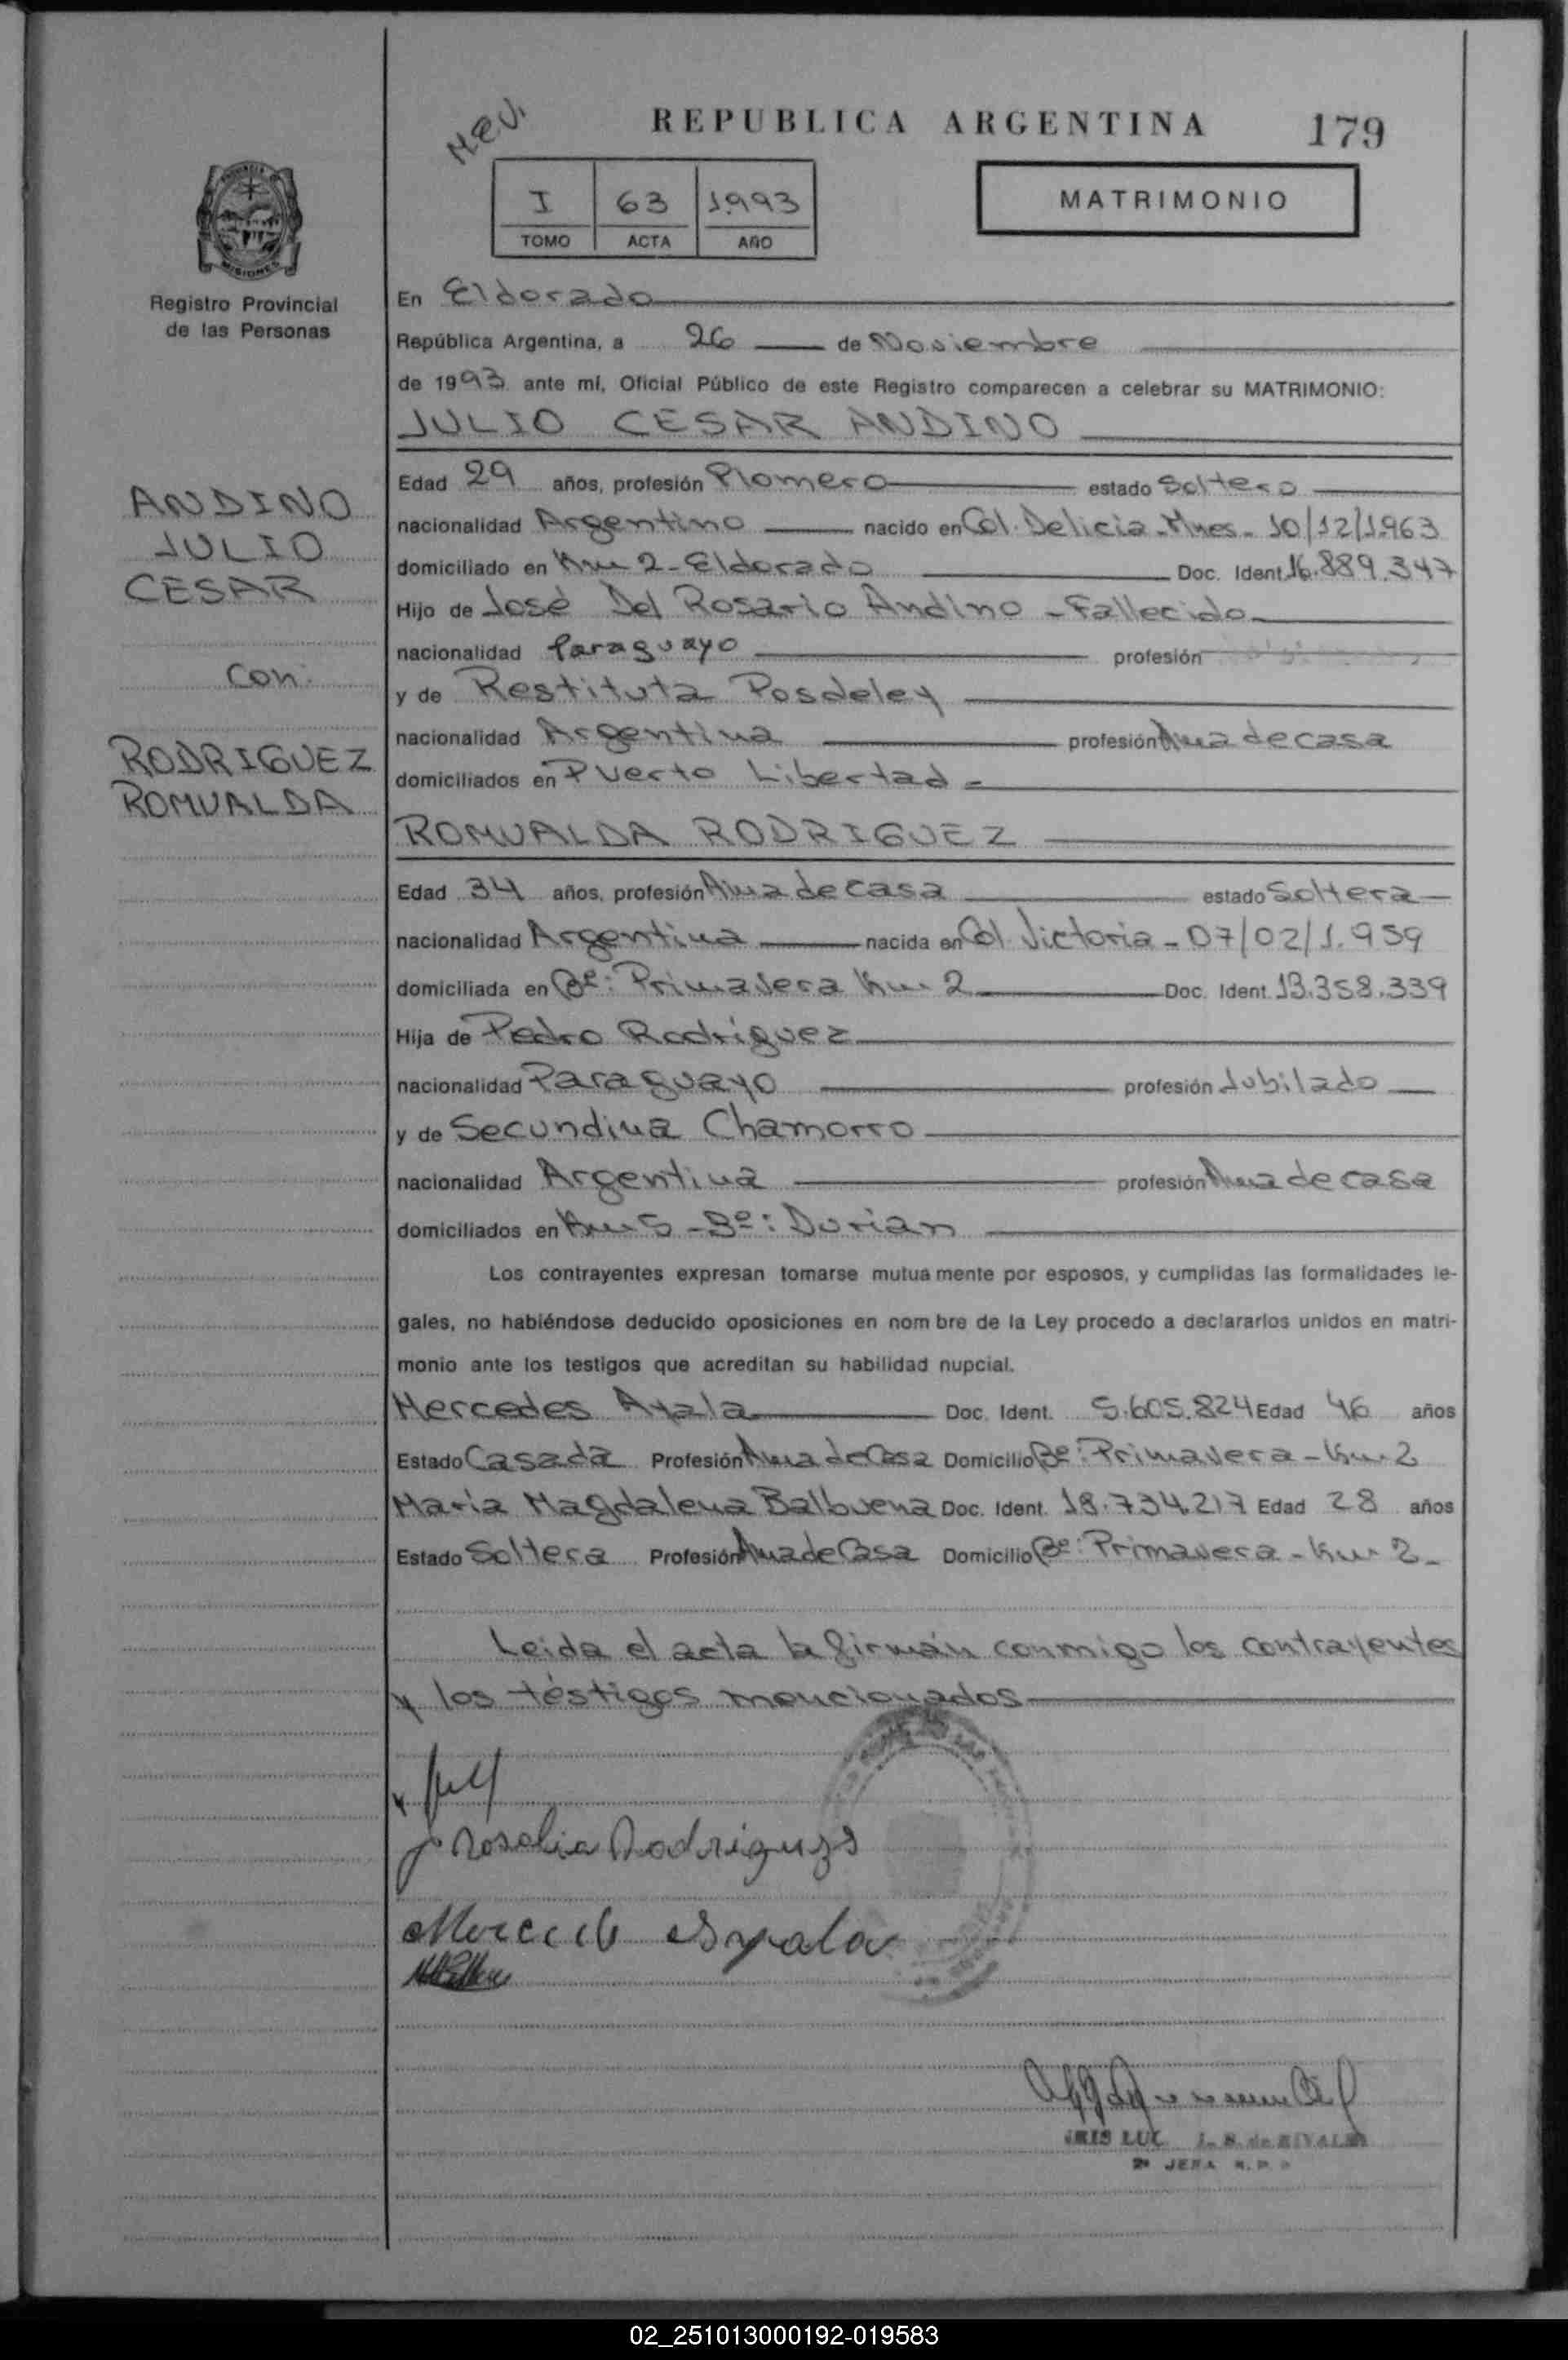 REPUBLICA ARGENTINA 179
MATRIMONIO
I 63 1993
TOMO ACTA AÑO
PROVINCIA DE
MISIONES
Registro Provincial
de las Personas
ANDINO
JULIO
CESAR
Con:
RODRIGUEZ
ROMUALDA
En Eldorado
República Argentina, a 26 de Noviembre
de 1993 ante mí, Oficial Público de este Registro comparecen a celebrar su MATRIMONIO:
JULIO CESAR ANDINO
Edad 29 años, profesión Plomero estado Soltero
nacionalidad Argentino nacido en Col. Delicia - Mnes - 10/12/1.963
domiciliado en Km 2 - Eldorado Doc. Ident. 16.889.347
Hijo de José Del Rosario Andino - Fallecido
nacionalidad Paraguayo profesión
y de Restituta Posdeley
nacionalidad Argentina profesión Ama de casa
domiciliados en Puerto Libertad -
ROMUALDA RODRIGUEZ
Edad 34 años, profesión Ama de casa estado Soltera
nacionalidad Argentina nacida en Col. Victoria - 07/02/1.959
domiciliada en Bº: Primavera Km 2 Doc. Ident. 13.358.339
Hija de Pedro Rodriguez
nacionalidad Paraguayo profesión Jubilado
y de Secundina Chamorro
nacionalidad Argentina profesión Ama de casa
domiciliados en Km 5 - Bº: Dorian
Los contrayentes expresan tomarse mutua mente por esposos, y cumplidas las formalidades le-
gales, no habiéndose deducido oposiciones en nom bre de la Ley procedo a declararlos unidos en matri-
monio ante los testigos que acreditan su habilidad nupcial.
Mercedes Ayala Doc. Ident. 5.605.824 Edad 46 años
Estado Casada Profesión Ama de Casa Domicilio Bº: Primavera - Km 2
María Magdalena Balbuena Doc. Ident. 18.734.217 Edad 28 años
Estado Soltera Profesión Ama de Casa Domicilio Bº: Primavera - Km 2 -
Leida el acta la firmán conmigo los contrayentes
y los téstigos mencionados
Rosalia Rodriguez
Mercede Ayala
IRIS LUZ de
2ª JEFA R. P.
02_251013000192-019583